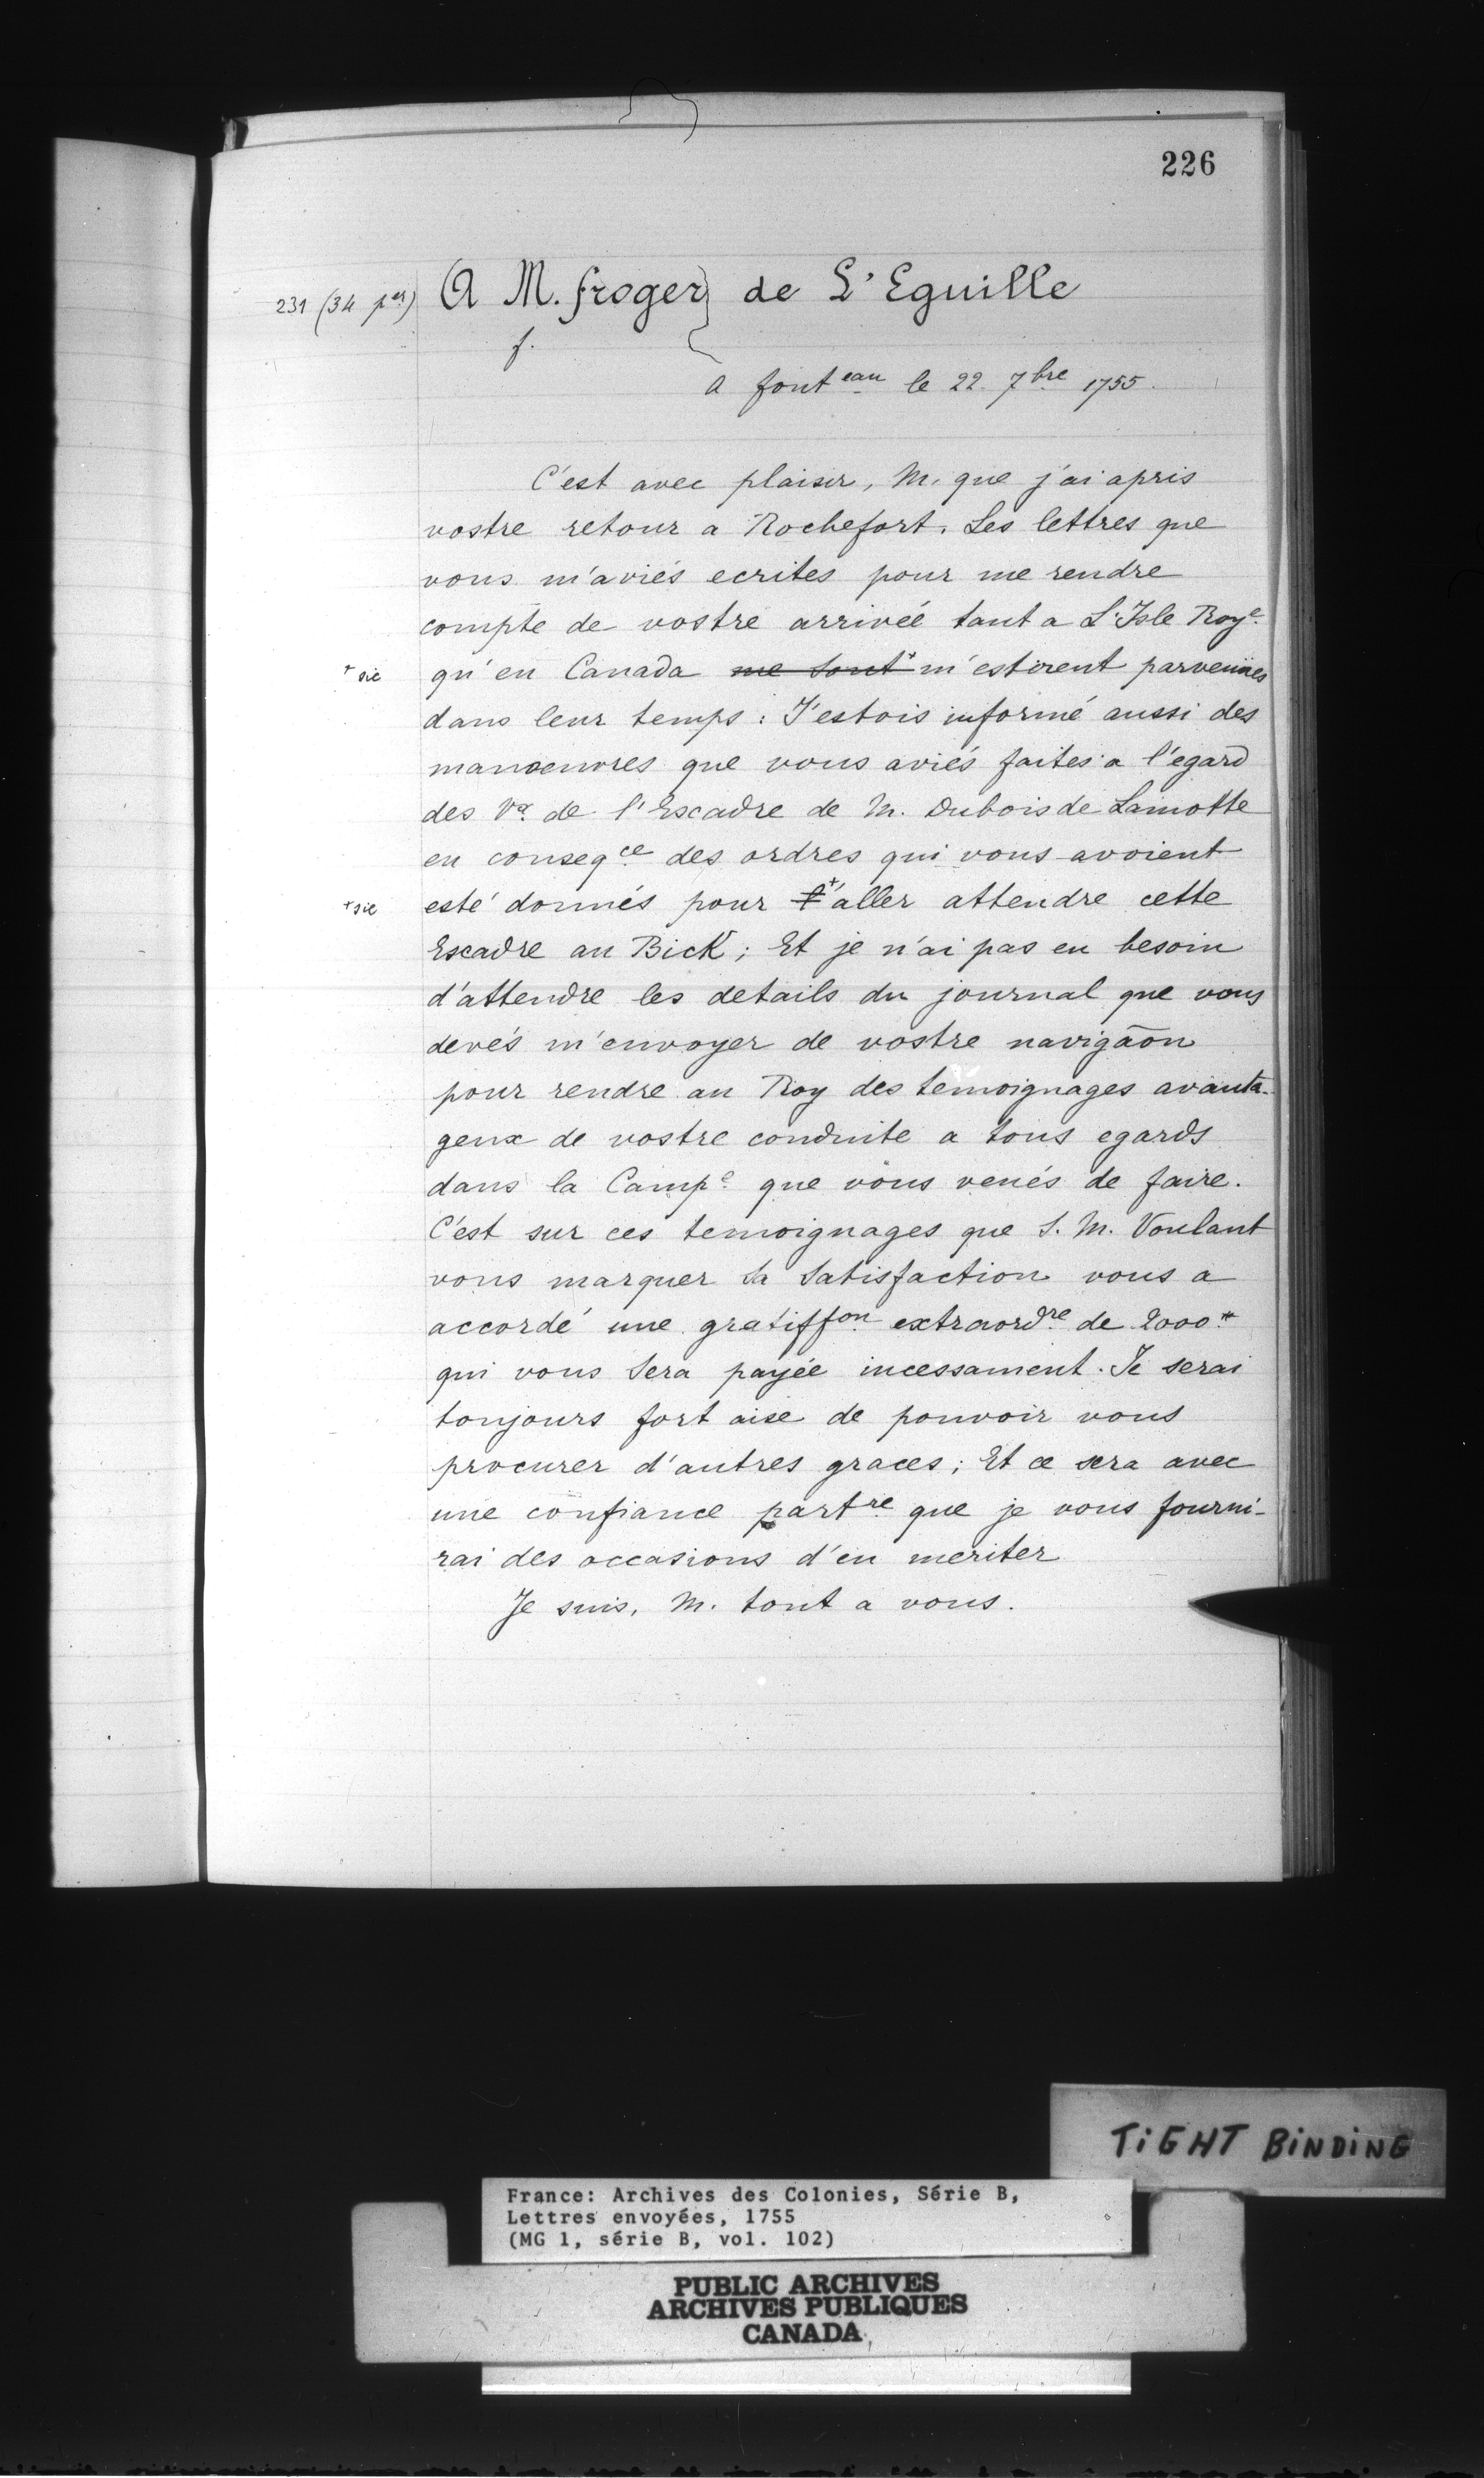 226
231 (34 per) A M. froger de L'Eguille
f.
A font eau le 22. 7bre 1755.
C'est avec plaisir, M. que j'ai apris
vostre retour a Rochefort. Les lettres que
vous m'aviés ecrites pour me rendre
compte de vostre arrivée tant a L'Isle Roye
+ sic qu'en Canada me sont+ m'estoient parvenües
dans leur temps : J'estois informé aussi des
manoeuvres que vous aviés faites a l'égard
des Vx de l'Escadre de M. Dubois de Lamotte
en conseqce des ordres qui vous avoient
+ sic esté donnés pour l'+ aller attendre cette
Escadre au Bick ; Et je n'ai pas eu besoin
d'attendre les details du journal que vous
devés m'envoyer de vostre navigāon
pour rendre au Roy des temoignages avanta-
geux de vostre conduite a tous egards
dans la Campe que vous venés de faire.
C'est sur ces temoignages que S. M. Voulant
vous marquer sa satisfaction vous a
accordé une gratiffon extraordre de 2000#
qui vous sera payée incessament. Je serai
toujours fort aise de pouvoir vous
procurer d'autres graces ; Et ce sera avec
une confiance partre que je vous fourni-
rai des occasions d'en meriter
Je suis, M. tout a vous.
TiGHT BiNDiNG
France: Archives des Colonies, Série B,
Lettres envoyées, 1755
(MG 1, série B, vol. 102)
PUBLIC ARCHIVES
ARCHIVES PUBLIQUES
CANADA